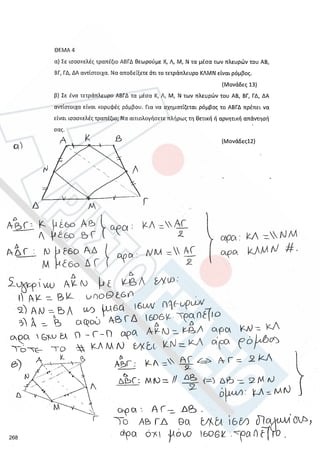 ΘΕΜΑ 4
α) Σε ισοσκελές τραπέζιο ΑΒΓΔ θεωρούμε Κ, Λ, Μ, Ν τα μέσα των πλευρών του ΑΒ,
ΒΓ, ΓΔ, ΔΑ αντίστοιχα. Να αποδείξετε ότι το τετράπλευρο ΚΛΜΝ είναι ρόμβος.
(Μονάδες 13)
β) Σε ένα τετράπλευρο ΑΒΓΔ τα μέσα Κ, Λ, Μ, Ν των πλευρών του ΑΒ, ΒΓ, ΓΔ, ΔΑ
αντίστοιχα είναι κορυφές ρόμβου. Για να σχηματίζεται ρόμβος το ΑΒΓΔ πρέπει να
είναι ισοσκελές τραπέζιο; Να αιτιολογήσετε πλήρως τη θετική ή αρνητική απάντησή
σας.
(Μονάδες12)
α)
Α Κ Β
Ν Λ
Δ Μ Γ
ΑΒΓ: Κ μέσο ΑΒ
Λ μέσο ΒΓ } άρα: ΚΛ =\\ ΑΓ/2
ΑΔΓ: Ν μέσο ΑΔ
Μ μέσο ΔΓ } άρα: ΝΜ =\\ ΑΓ/2
άρα: ΚΛ =\\ ΝΜ
άρα ΚΛΜΝ #.
Συγκρίνω ΑΚΝ με ΚΒΛ έχω:
1) ΑΚ = ΒΚ υπόθεση
2) ΑΝ = ΒΛ ως μισά ίσων πλευρών
3) Α = Β αφού ΑΒΓΔ ισοσκ τραπέζιο
άρα ισχύει Π-Γ-Π άρα ΑΚΝ = ΚΒΛ άρα ΚΝ = ΚΛ
τότε το # ΚΛΜΝ έχει ΚΝ = ΚΛ άρα ρόμβος
β)
Α Κ Β
Ν Λ
Δ Μ Γ
ΑΒΓ: ΚΛ =\\ ΑΓ/2 ⇔ ΑΓ = 2ΚΛ
ΔΒΓ: ΜΝ =\\ ΔΒ/2 (=) ΔΒ = 2ΜΝ
όμως: ΚΛ = ΜΝ
άρα: ΑΓ = ΔΒ.
Το ΑΒΓΔ θα έχει ίσες διαγώνιους,
άρα όχι μόνο ισοσκ. τραπέζιο.
268